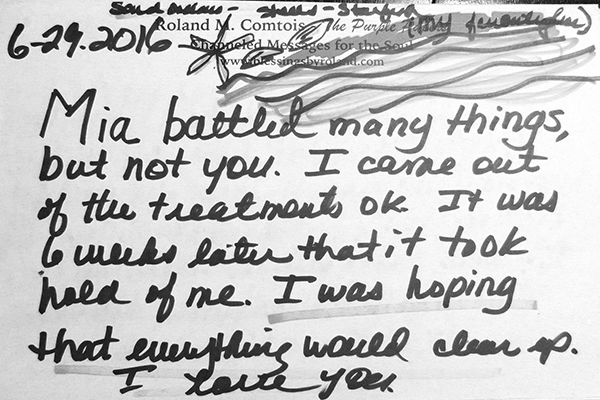 Sand dollars - stars - Starfish
(my favourite
Roland M. Comtois The Purple
6-29.2016
Channeled Messages for the Soul
www.blessingsbyroland.com
Mia battled many things,
but not you. I came out
of the treatments ok. It was
6 weeks later that it took
hold of me. I was hoping
that everything would clear up.
I love you.